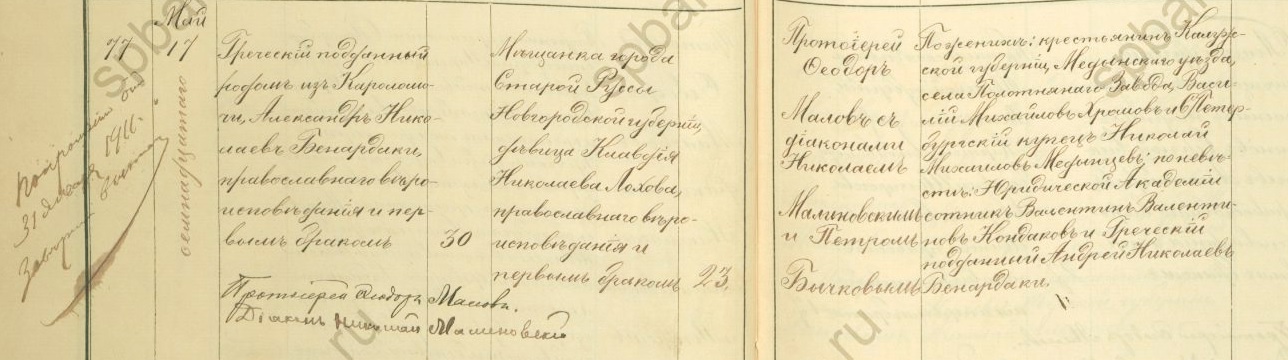 Май
77
17
семнадцатаго
Греческій подданный
родомъ изъ
Александръ Нико-
лаевъ Бенардаки,
православнаго вѣро-
исповѣданія и пер-
вымъ бракомъ
30
Мѣщанка города
Старой Руссы
Новгородской губерніи,
дѣвица Клавдія
Николаева Лохова,
православнаго вѣро-
исповѣданія и
первымъ бракомъ
23.
Протоіерей
Ѳеодоръ
Маловъ съ
діаконами
Николаемъ
Малиновскимъ
и Петромъ
Бычковымъ
По женихѣ: крестьянинъ Калуж-
ской губерніи, Медынскаго уѣзда,
села Полотнянаго Завода, Васи-
лій Михайловъ Хромовъ и СПетер-
бургскій купецъ Николай
Михаиловъ Медынцевъ; по невѣ-
стѣ: Юридической Академіи
сотникъ Валентинъ Валенти-
новъ Кондаковъ и Греческій
подданный Андрей Николаевъ
Бенардаки.
Протоіерей Ѳеодоръ Маловъ.
Діаконъ Николай Малиновскій
31 1911.
spbar
spbar
spbar
spbar
ru
ru